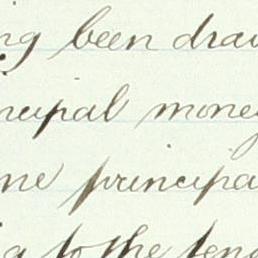 ng been draw
ncipal money
me principa
g to the ten